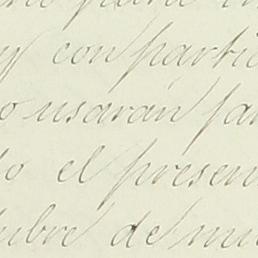 y con partic
o usarán par
o el presen
ubre de mi